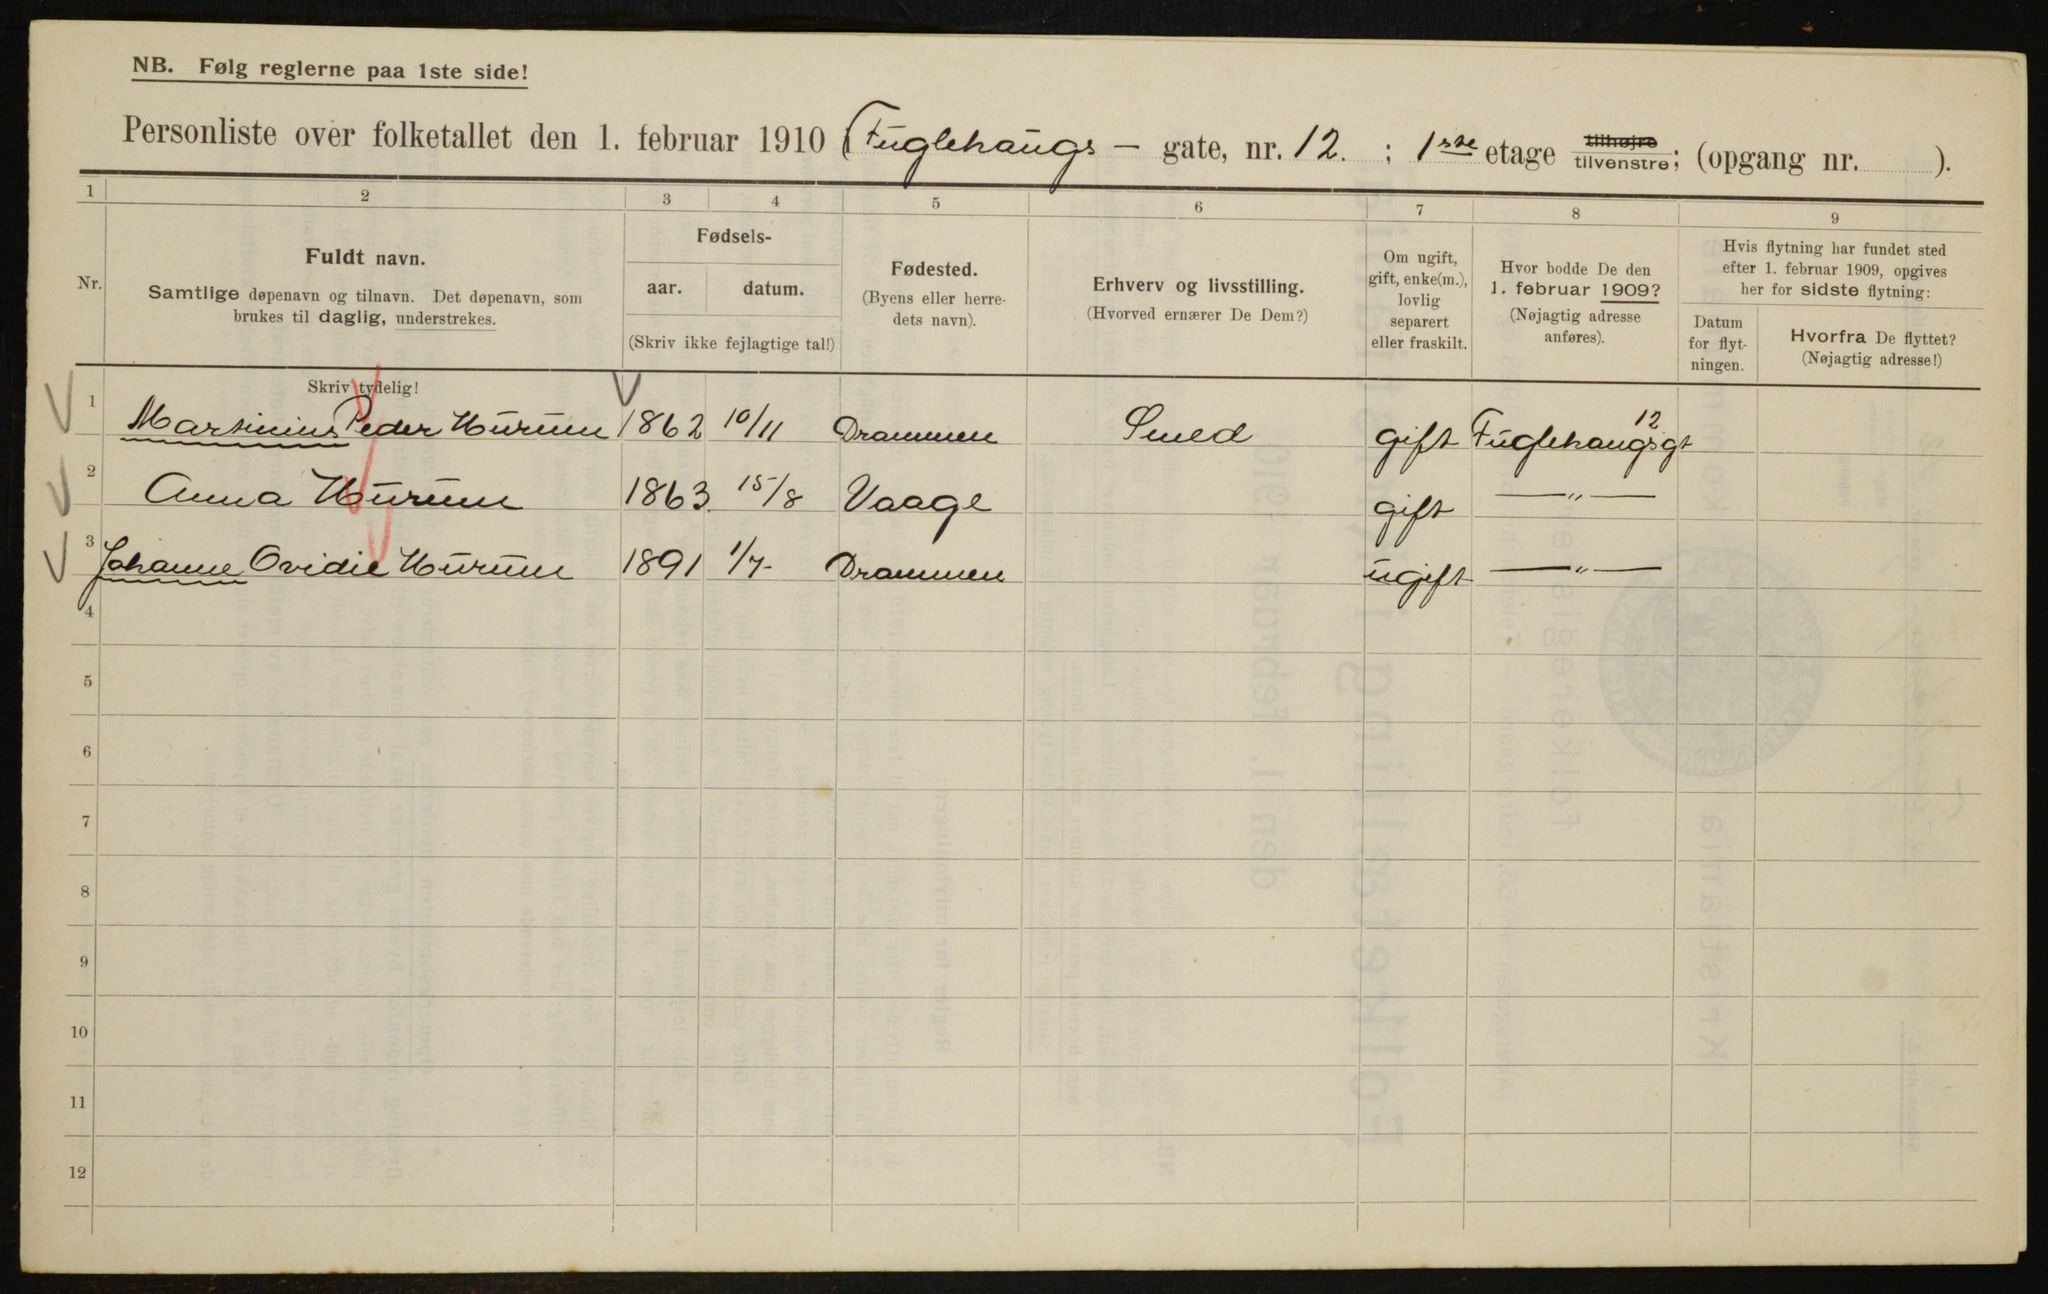 NB. Følg reglerne paa 1ste side!
Personliste over folketallet den 1. februar 1910 (Fuglehaugs - gate, nr. 12. ; 1ste etage tilhøjre tilvenstre; (opgang nr. ).
1 2 3 4 5 6 7 8 9
Nr.
Fuldt navn.
Samtlige døpenavn og tilnavn. Det døpenavn, som
brukes til daglig, understrekes.
Fødsels-
aar. datum.
(Skriv ikke fejlagtige tal!)
Fødested.
(Byens eller herre-
dets navn).
Erhverv og livsstilling.
(Hvorved ernærer De Dem?)
Om ugift,
gift, enke(m.),
lovlig
separert
eller fraskilt.
Hvor bodde De den
1. februar 1909?
(Nøjagtig adresse
anføres).
Hvis flytning har fundet sted
efter 1. februar 1909, opgives
her for sidste flytning:
Datum
for flyt-
ningen.
Hvorfra De flyttet?
(Nøjagtig adresse!)
Skriv tydelig!
1 Martinius Peder Hurum 1862 10/11 Drammen Smed gift Fuglehaugsgt 12
2 Anna Hurum 1863 15/8 Vaage gift — „ —
3 Johanne Ovidie Hurum 1891 1/7 Drammen ugift — „ —
4
5
6
7
8
9
10
11
12